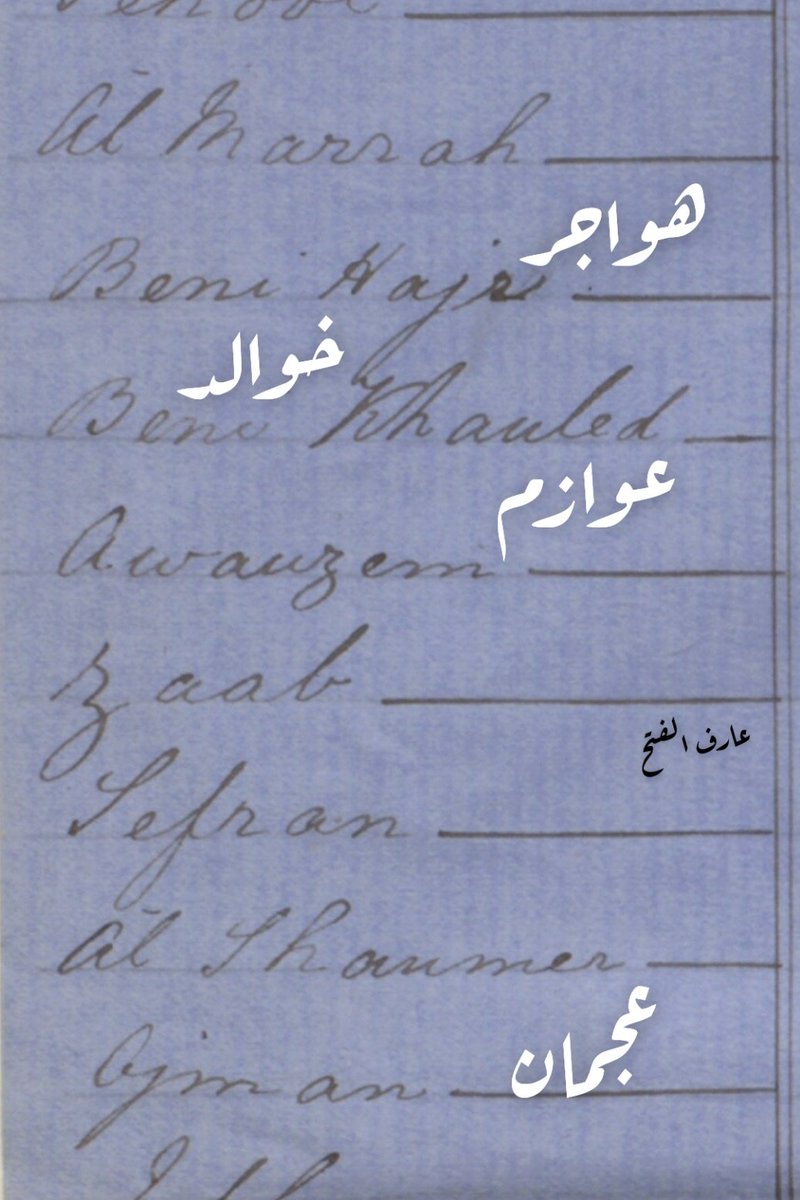 Al Marrah
هواجر
Beni Hajr
خوالد
Beni Khauled
عوازم
Awauzem
Zaab
عارف الفتح
Sefran
Al Shaumer
عجمان
Ajman